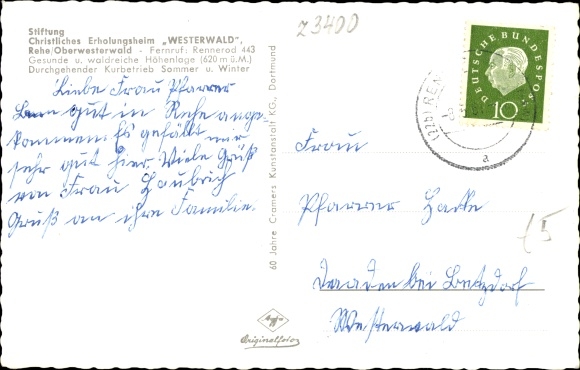 Stiftung
Christliches Erholungsheim „WESTERWALD",
Rehe/Oberwesterwald - Fernruf: Rennerod 443
Gesunde u. waldreiche Höhenlage (620 m ü.M.)
Durchgehender Kurbetrieb Sommer u. Winter
Z3400
Liebe Frau Pfarrer
gut in Rehe ange-
kommen. Es gefällt mir
sehr gut hier. Viele Grüß
von Frau Haubrich
Gruß an ihre Familie.
60 Jahre Cramers Kunstanstalt KG., Dortmund
DEUTSCHE BUNDESPOST
10
a
Frau
Pfarrer
Daaden bei Betzdorf
Westerwald
Agfa
Originalfoto